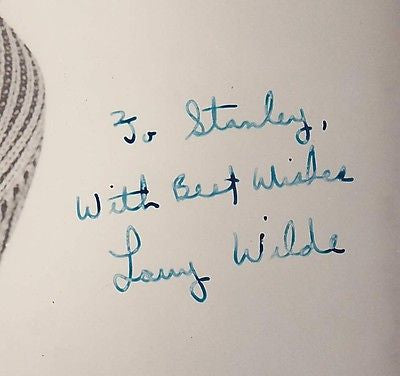 To Stanley,
With Best Wishes
Larry Wilde